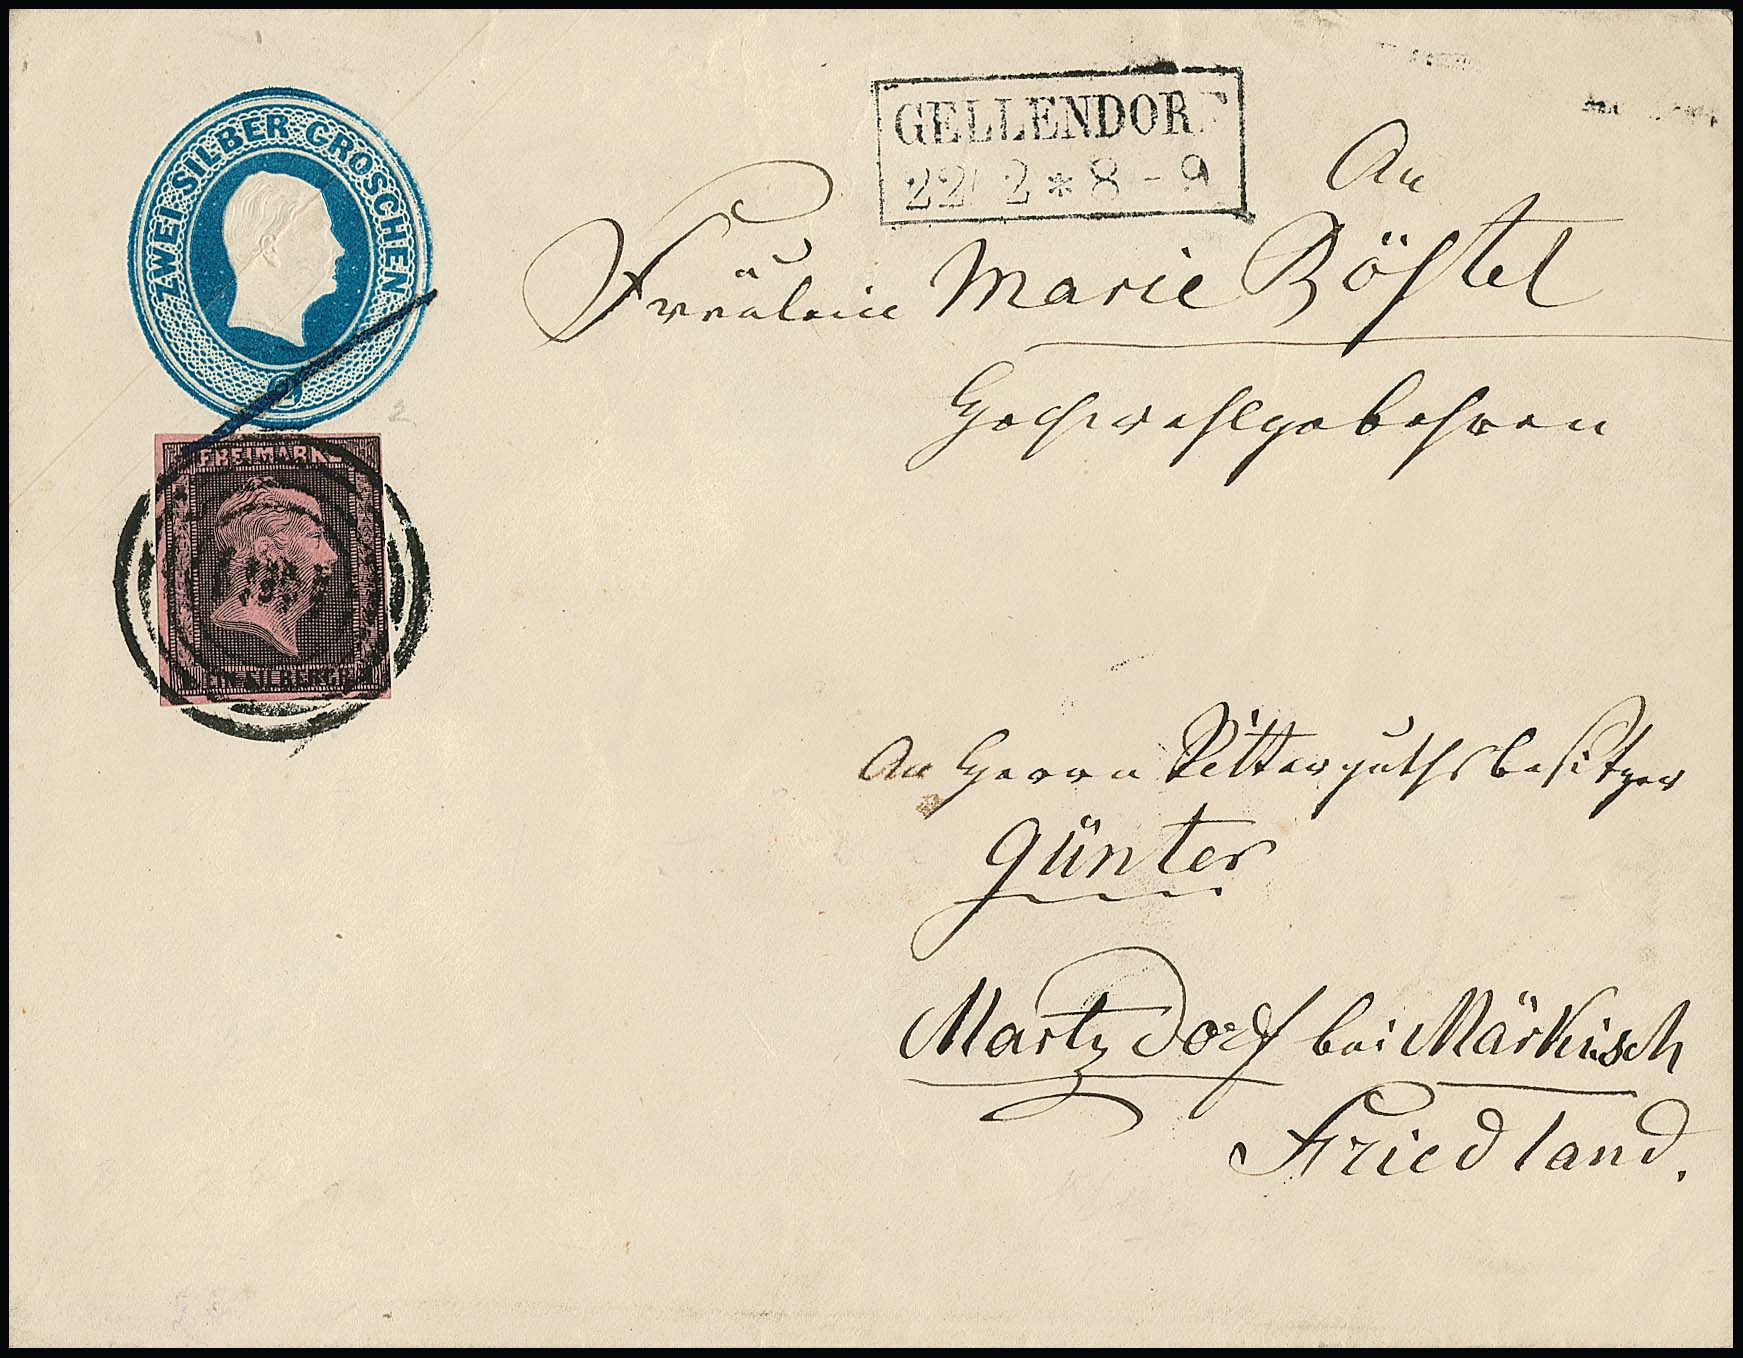 ZWEI SILBER GROSCHEN
2
GELLENDORF
22/2 * 8 - 9
An
Fräulein Marie Böstel
Hochwohlgebohren
FREIMARKE
EIN SILBERGR.
An Herrn Ritterguthsbesitzer
Günter
Martzdorf bei Märkisch
Friedland.